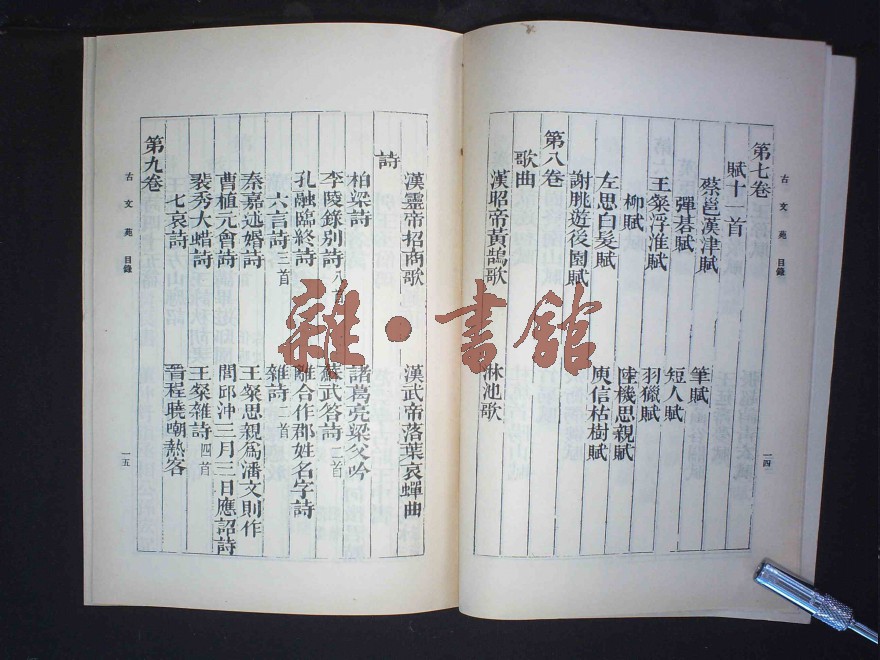 古文苑 目錄
一四
第七卷
賦十一首
蔡邕漢津賦 筆賦
彈棊賦 短人賦
王粲浮淮賦 羽獵賦
柳賦 陸機思親賦
左思白髮賦 庾信枯樹賦
謝朓遊後園賦
第八卷
歌曲
漢昭帝黃鵠歌 淋池歌
漢靈帝招商歌 漢武帝落葉哀蟬曲
詩
柏梁詩 諸葛亮梁父吟
李陵錄別詩八首 蘇武答詩二首
孔融臨終詩 離合作郡姓名字詩
六言詩三首 雜詩二首
秦嘉述婚詩 王粲思親爲潘文則作
曹植元會詩 閭邱沖三月三日應詔詩
裴秀大蜡詩 王粲雜詩四首
七哀詩 晉程曉嘲熱客
第九卷
古文苑 目錄
一五
雜·書館